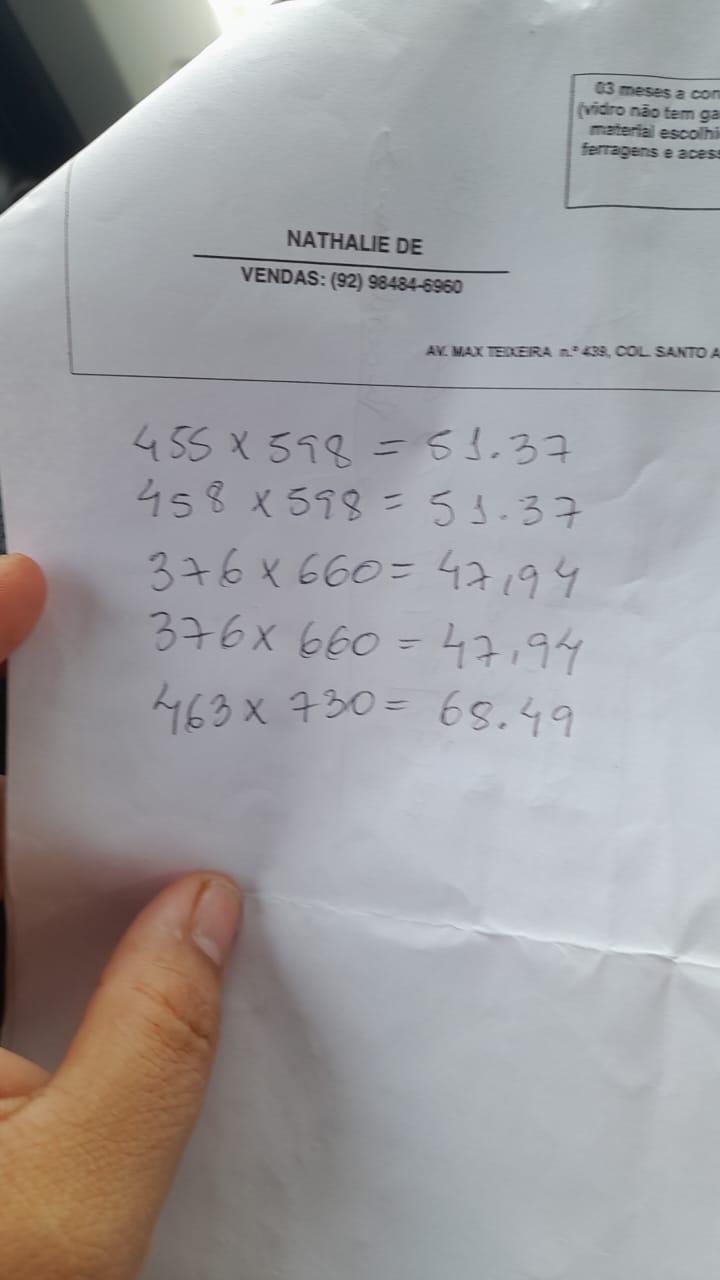 03 meses a con
(vidro não tem ga
material escolhi
ferragens e acess
NATHALIE DE
VENDAS: (92) 98484-6960
AV. MAX TEIXEIRA n.º 439, COL. SANTO A
455 x 598 = 51.37
458 x 598 = 51.37
376 x 660 = 47,94
376 x 660 = 47,94
463 x 730 = 68.49